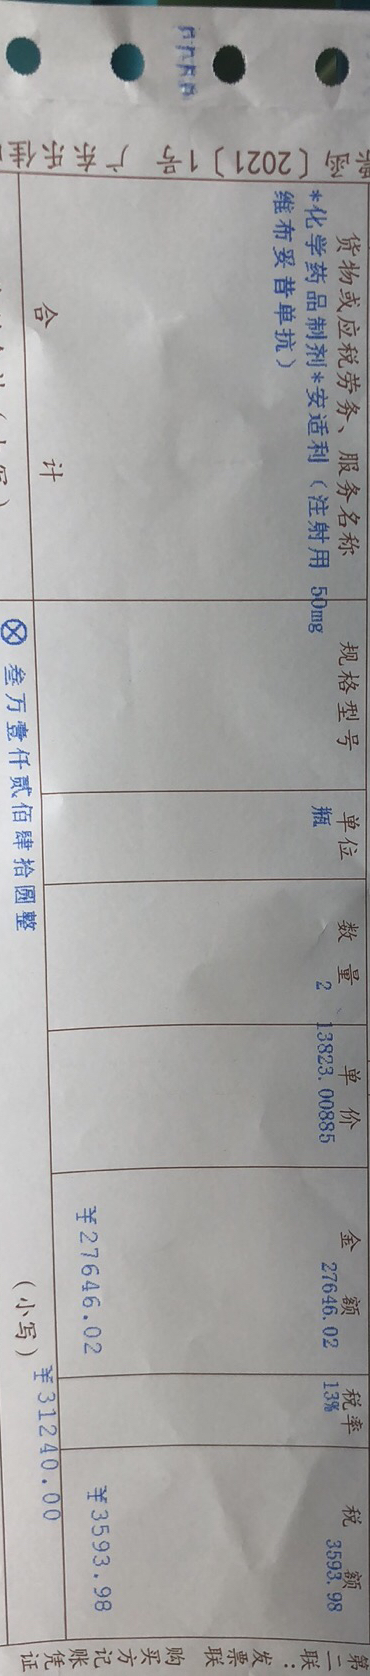 货物或应税劳务、服务名称 规格型号 单位 数量 单价 金额 税率 税额
*化学药品制剂*安适利（注射用 50mg 瓶 2 13823.00885 27646.02 13% 3593.98
维布妥昔单抗）
合计 ¥27646.02 ¥3593.98
⊗ 叁万壹仟贰佰肆拾圆整 （小写） ¥31240.00
〔2021〕1号 广东乐佳
第二联：发票联 购买方记账凭证